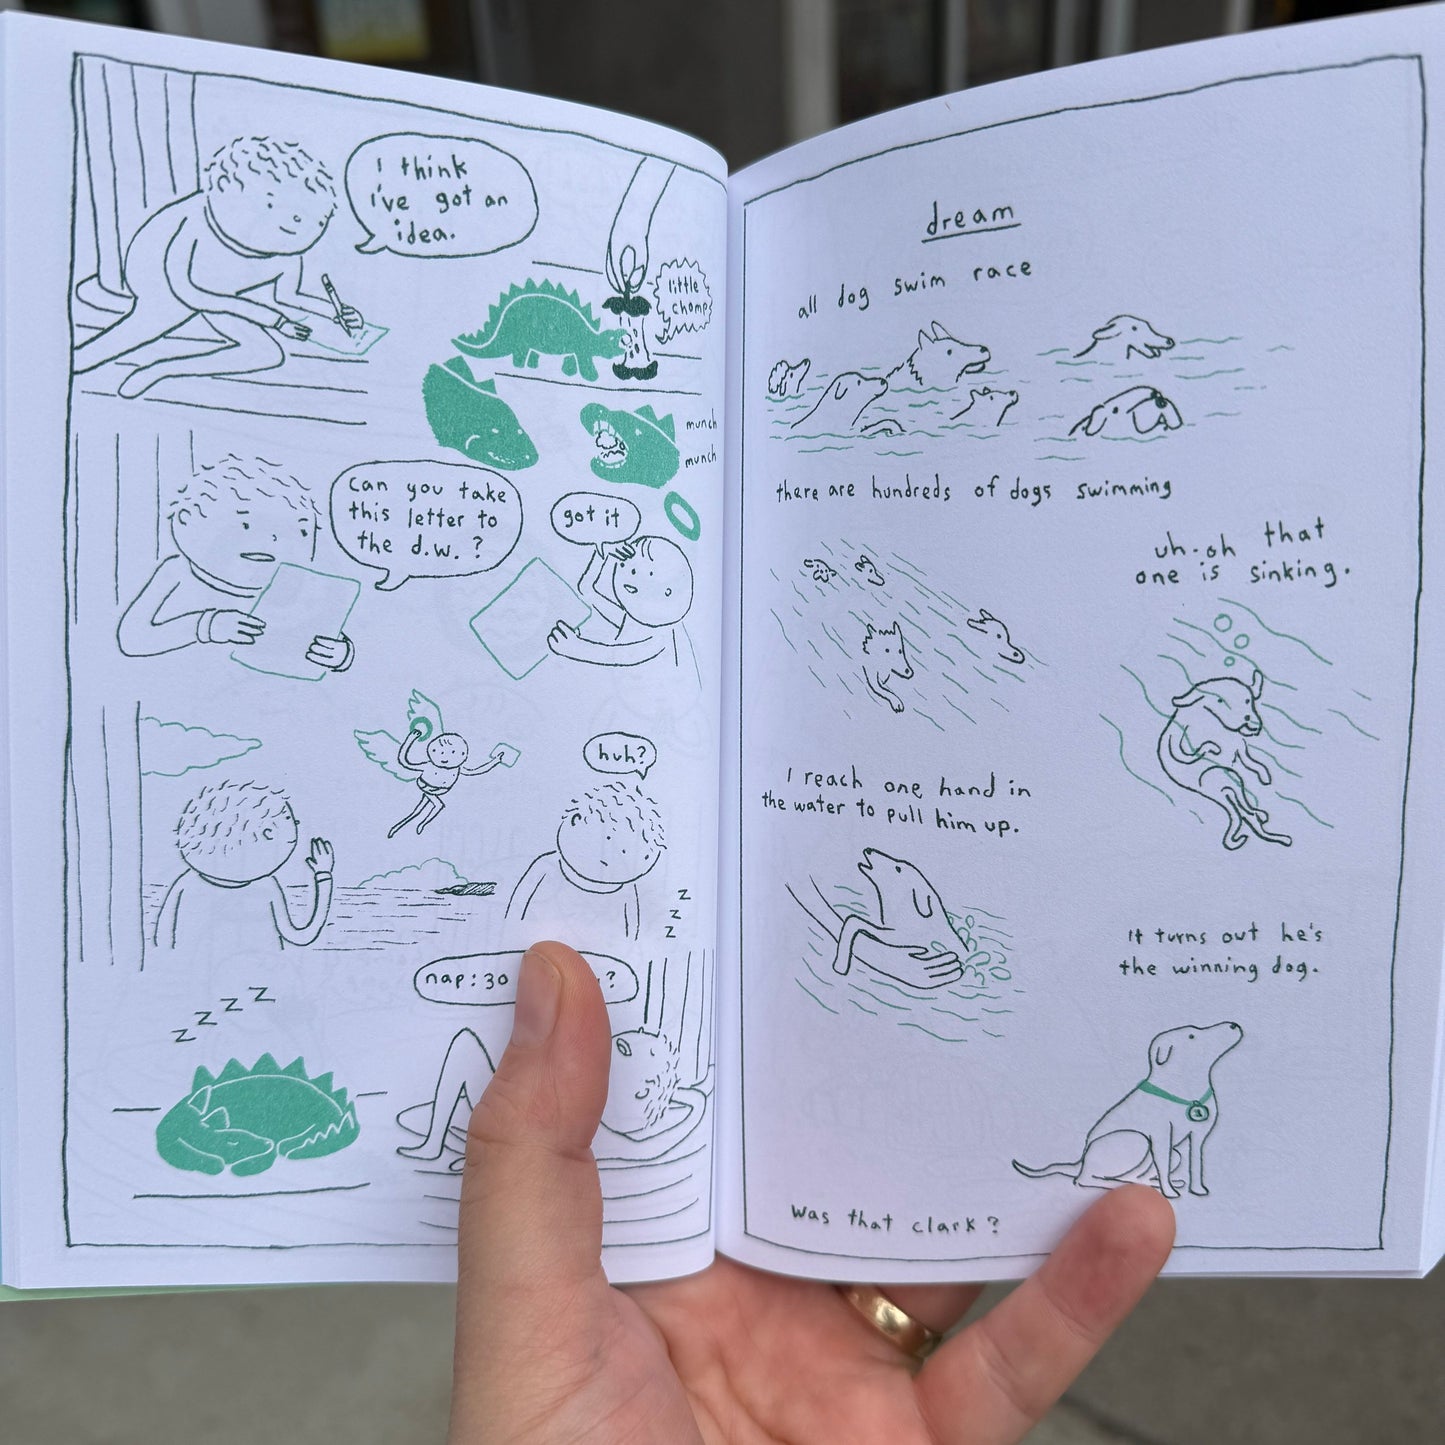 I think
i've got an
idea.
little
chomp
munch
munch
can you take
this letter to
the d.w.?
got it
huh?
z
z
z
nap:30 ?
z z z z
dream
all dog swim race
there are hundreds of dogs swimming
uh-oh that
one is sinking.
I reach one hand in
the water to pull him up.
It turns out he's
the winning dog.
1
was that clark?